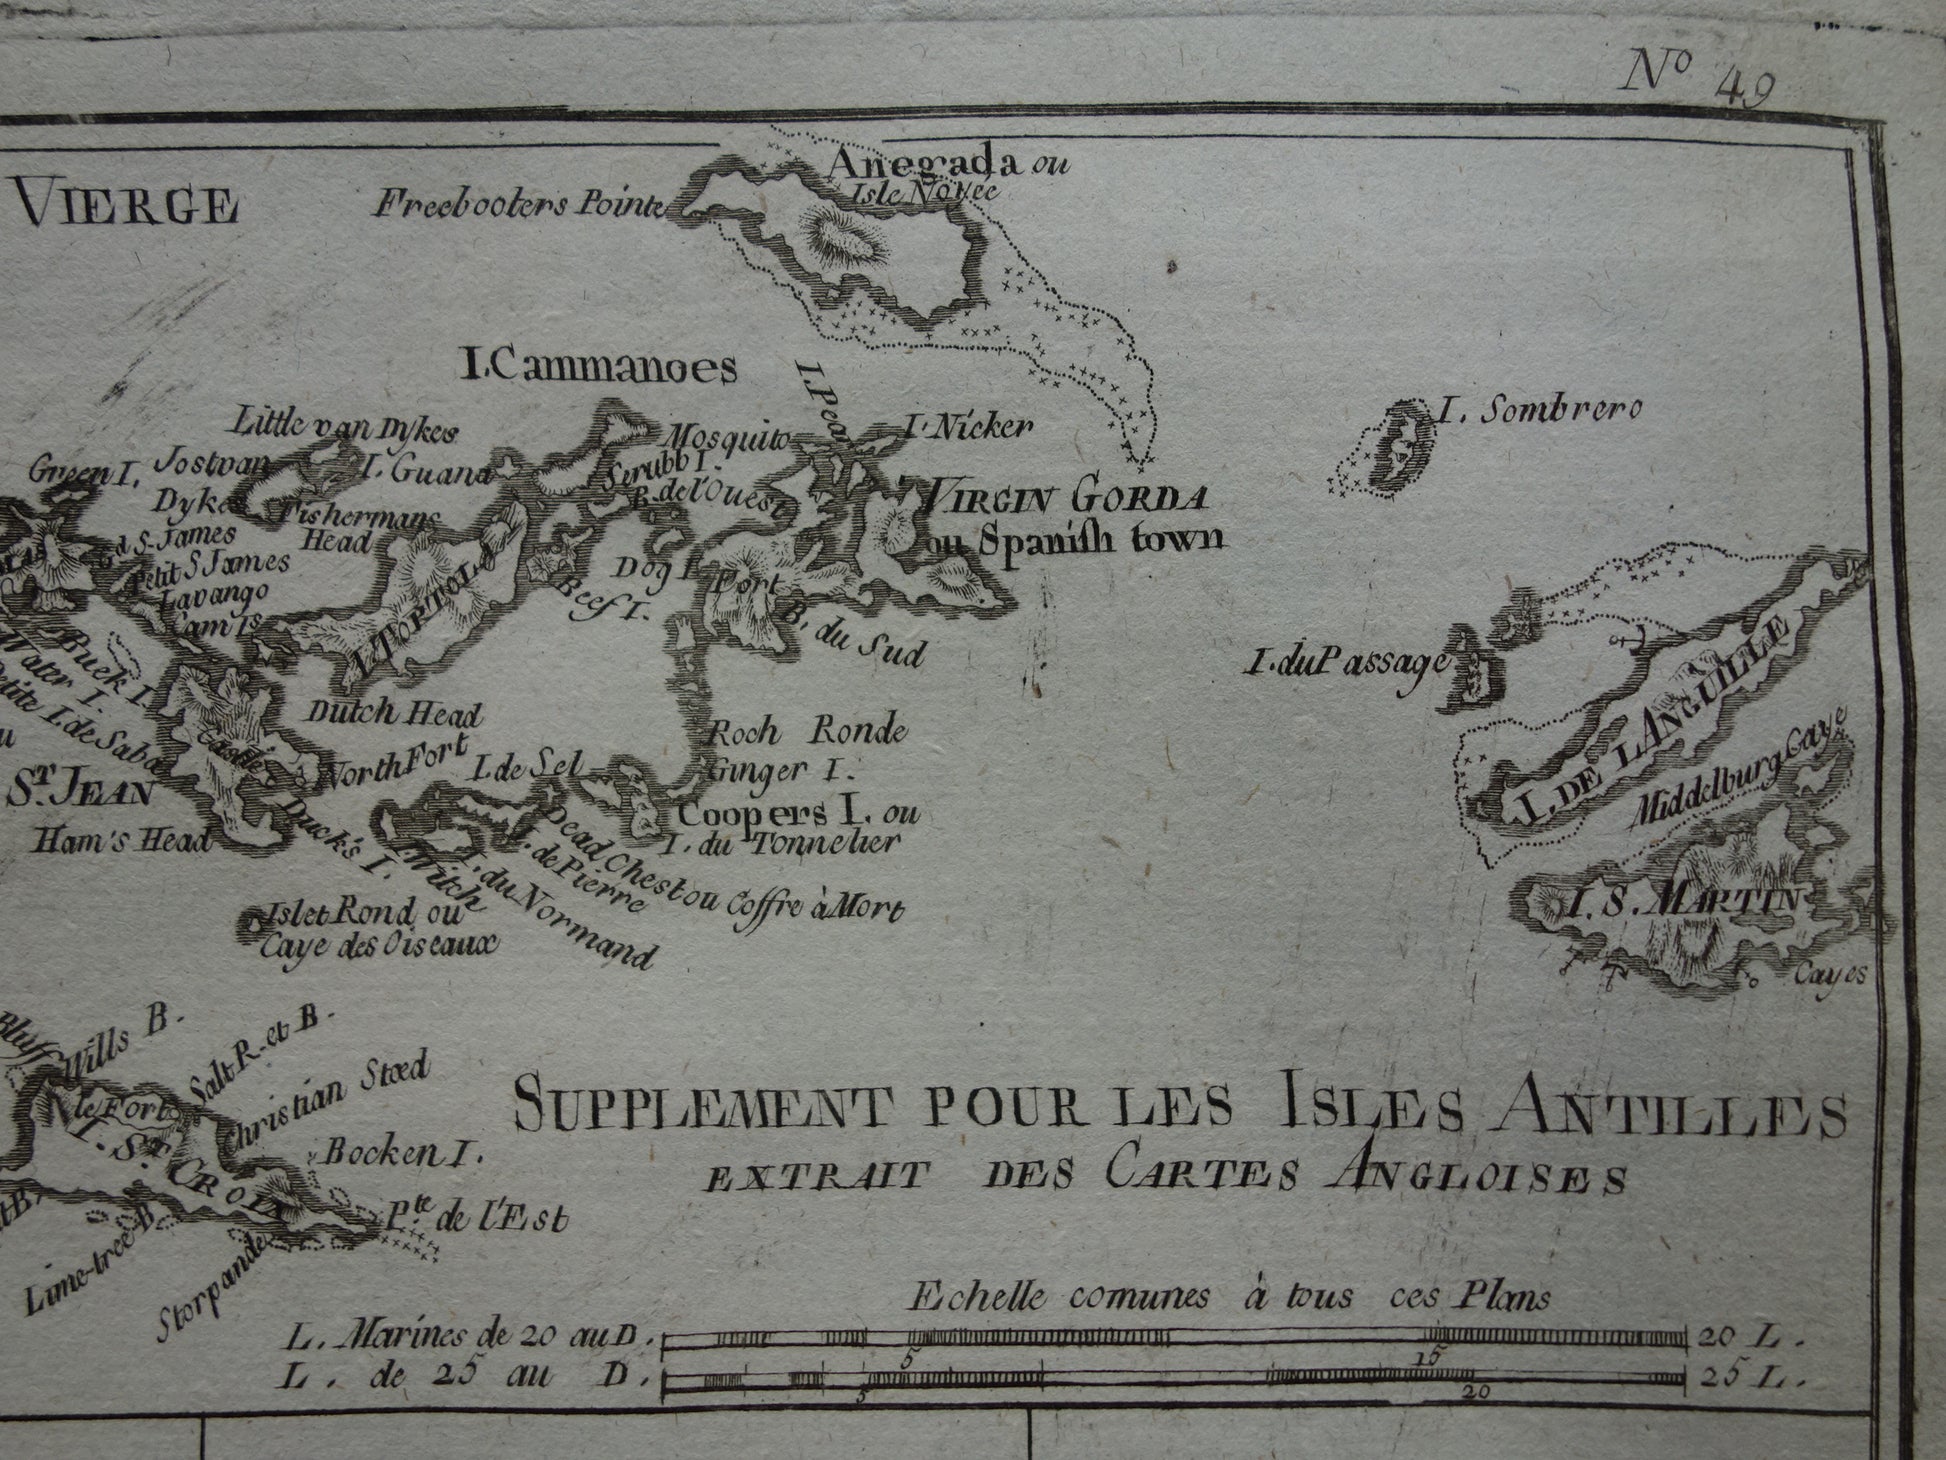 Nº 49
VIERGE
Anegada ou
Isle Noyée
Freebooters Pointe
I. Cammanoes
I. Pear
I. Nicker
I. Sombrero
Little van Dykes
Mosquito
Green I.
Jostvan
Dykes
I. Guana
Scrubb I.
B. de l'Ouest
VIRGIN GORDA
ou Spanish town
Fishermans
Head
Gd S. James
Petit S James
Lavango
Cam Is
Dog I.
Fort
Beef I.
B. du Sud
I. TORTOLA
I. du Passage
I. DE L'ANGUILLE
Buck I.
Water I.
Petite I. de Saba
Dutch Head
North Fort
Castle
Roch Ronde
Ginger I.
I. de Sel
Coopers I. ou
I. du Tonnelier
Middelburg Caye
ST. JEAN
Ham's Head
Duck's I.
I. Witch
I. du Normand
I. de Pierre
Dead Chest ou Coffre à Mort
Islet Rond ou
Caye des Oiseaux
I. S. MARTIN
Cayes
Bluff
Wills B.
Salt R. et B.
le Fort
Christian Stœd
I. ST. CROIX
Bocken I.
Pte. de l'Est
Lime-tree B.
Storpande
SUPPLEMENT POUR LES ISLES ANTILLES
EXTRAIT DES CARTES ANGLOISES
Echelle comunes à tous ces Plans
L. Marines de 20 au D. 5 15 20 L.
L. de 25 au D. 5 20 25 L.